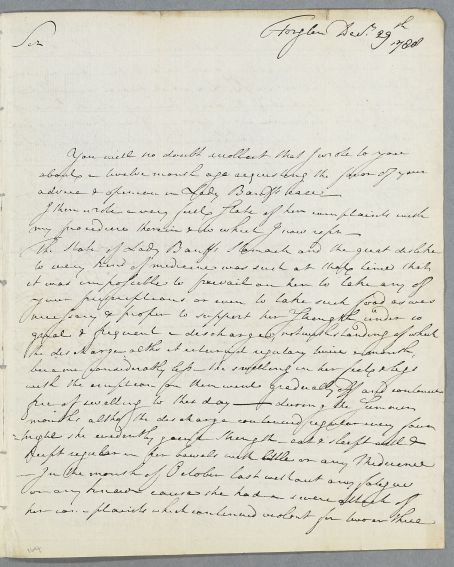 Sir
Forglen Decr. 29th
1788
You will no doubt recollect that I wrote to you
about a twelve month ago requesting the favor of your
advice & opinion in Lady Banffs case.
I then wrote a very full State of her complaints with
my procedure therein & to which I now refer
The State of Lady Banffs Stomach and the great dislike
to every kind of medicine was such at that time that
it was impossible to prevail on her to take any of
your prescriptions or even to take such food as was
necessary & proper to support her Strength under so
great & frequent a discharge, notwithstanding of which
the discharge altho it returned regular twice a month,
became considerably less the swelling in her feet & legs
with the eruption on them went gradually off and continued
free of swelling to this day During the Summer
months altho the discharge continued regular every four
night she evidently gained Strength eat & sleept well &
keept regular in her bowels with little or any Medicine
In the month of October last without any fatigue
or any known cause she had a severe attack of
her complaints which continued violent for two or three